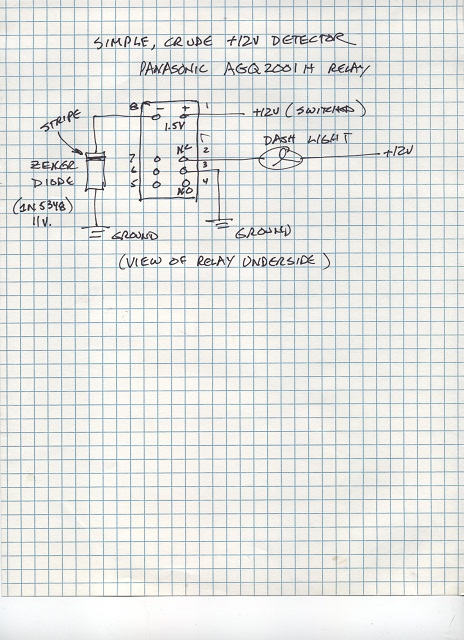 SIMPLE, CRUDE +12V DETECTOR
PANASONIC AGQ2001H RELAY
8 - + 1
+12V (SWITCHED)
1.5V
STRIPE
DASH LIGHT
NC
7 2
+12V
ZENER
DIODE
6 3
5 4
NO
(1N5348)
11V.
GROUND
GROUND
(VIEW OF RELAY UNDERSIDE)